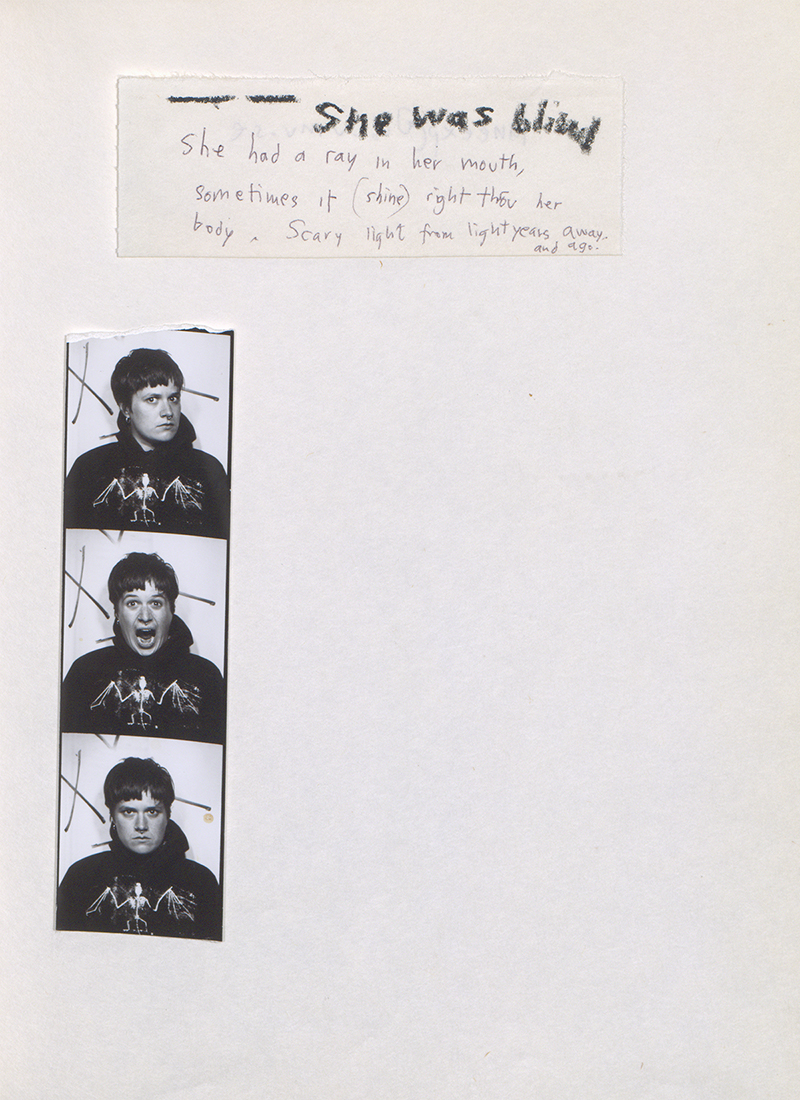 — — She was blind
She had a ray in her mouth,
sometimes it (shine) right thru her
body. Scary light from lightyears away.
and ago.